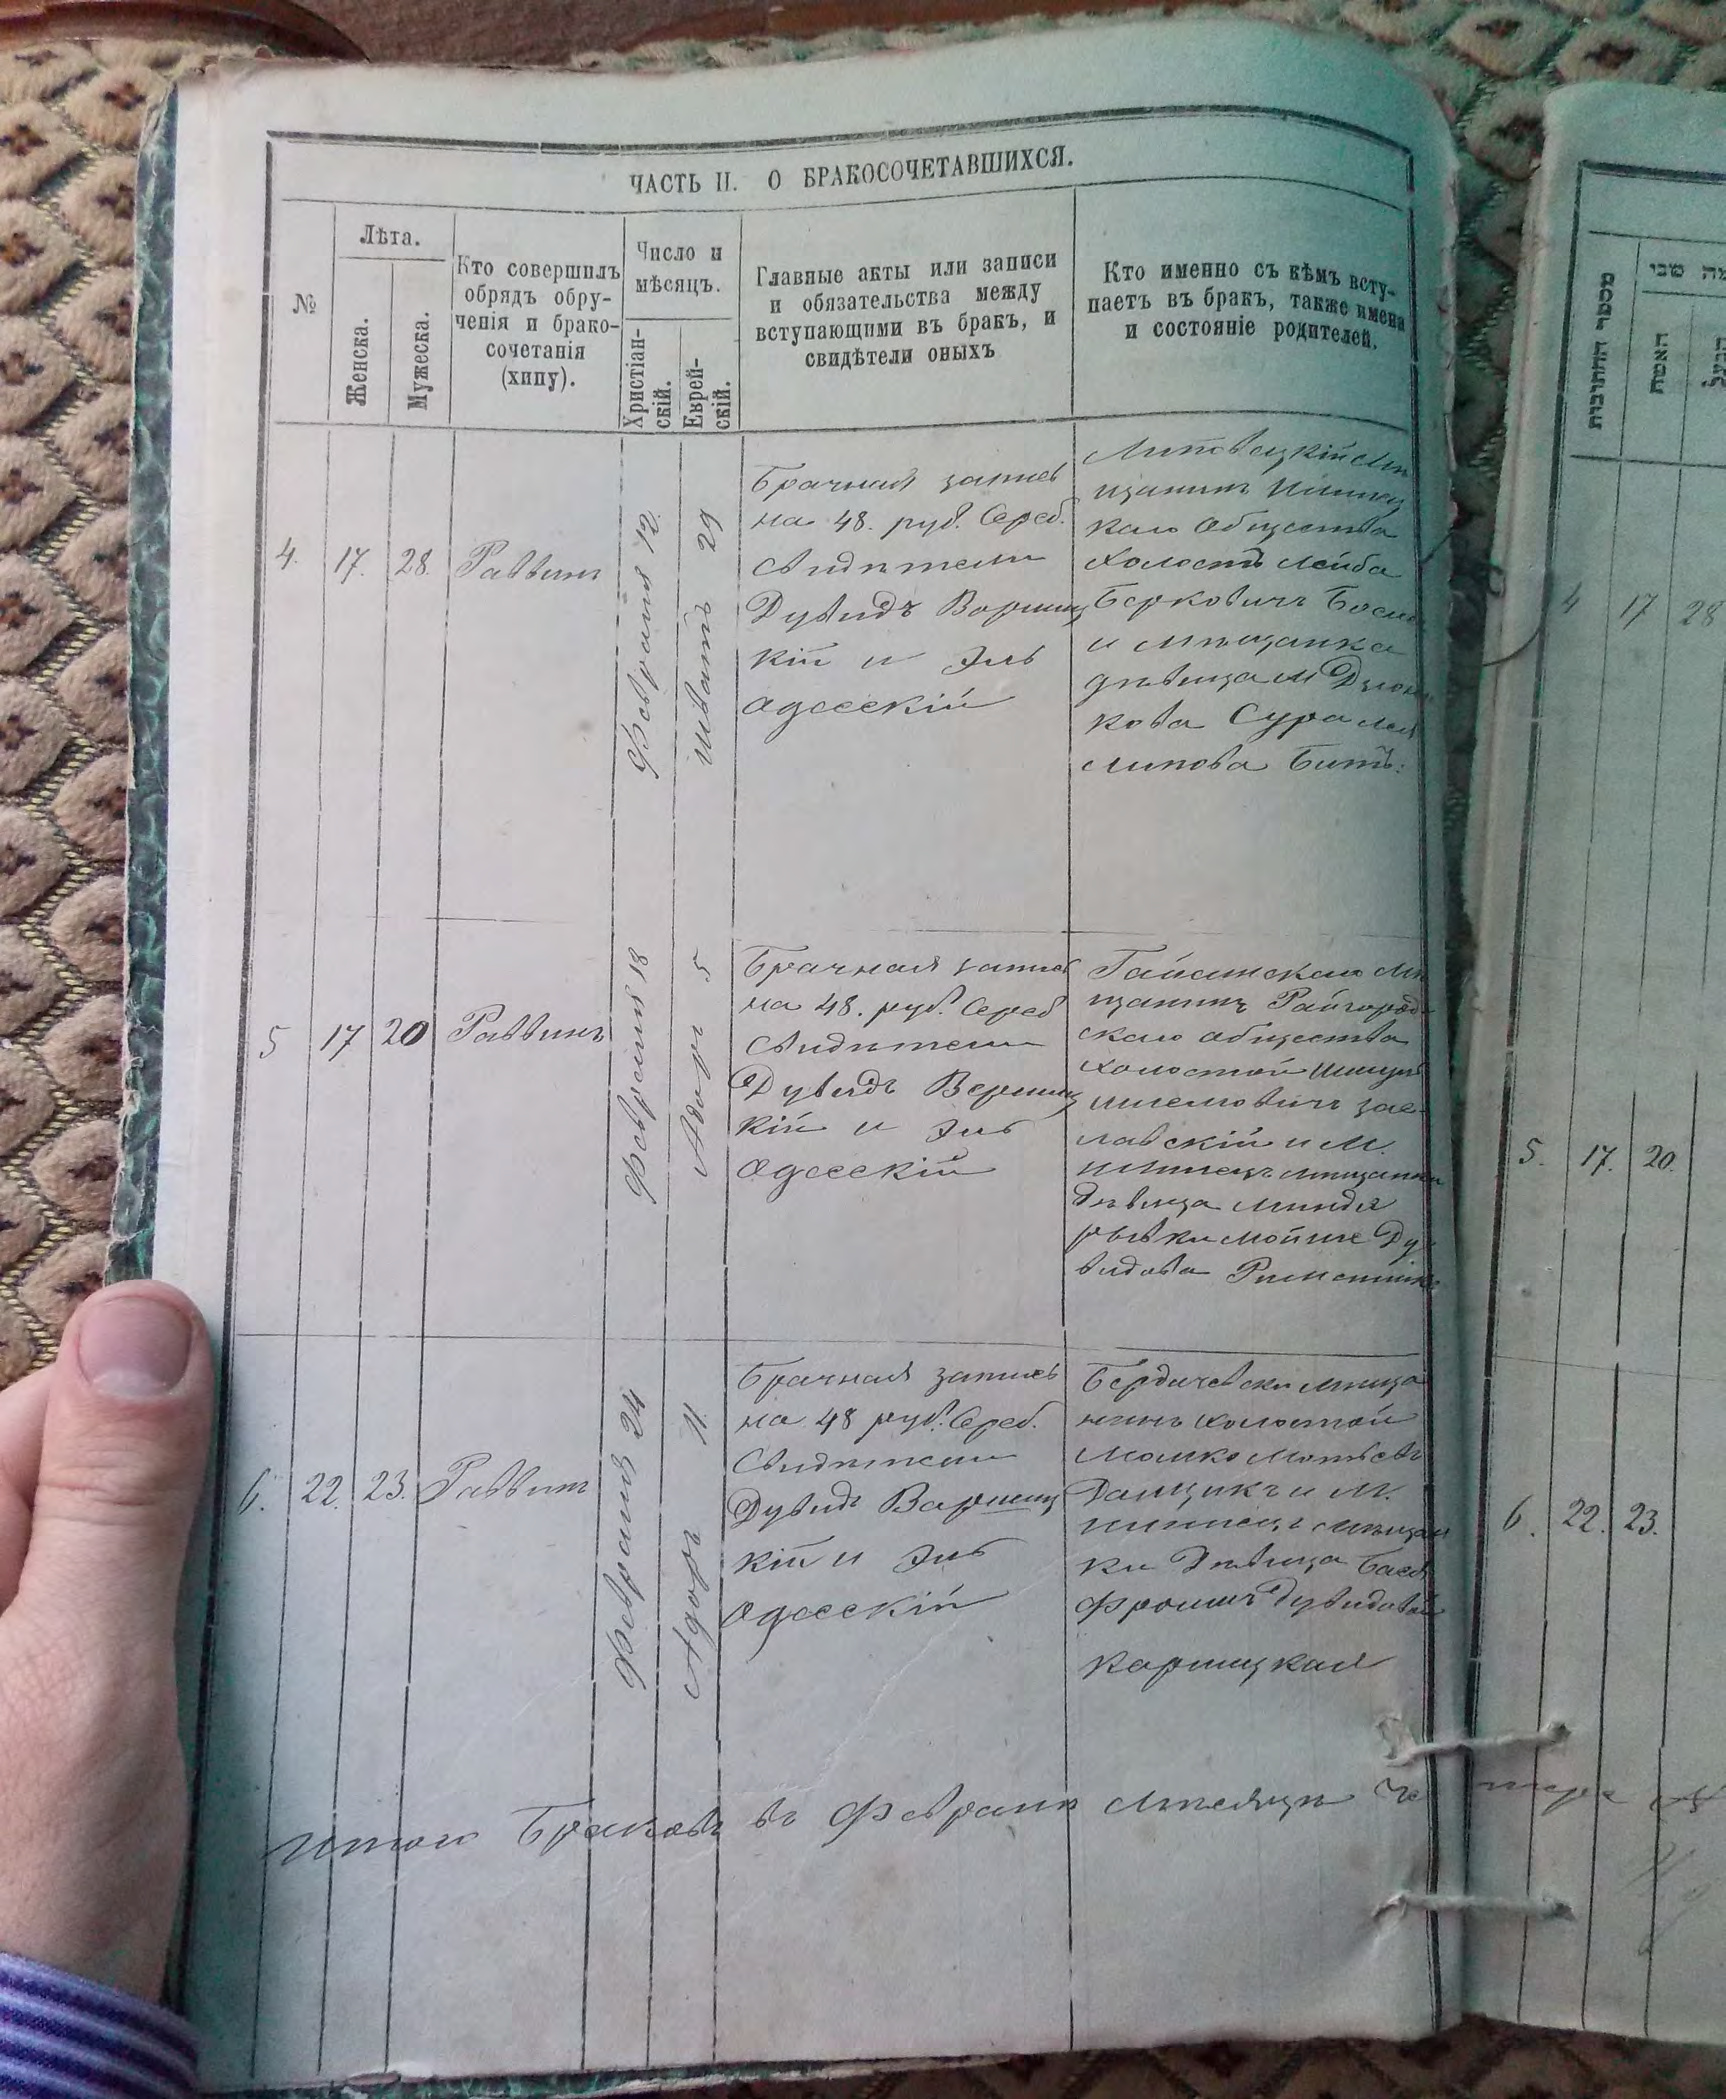 ЧАСТЬ II. О БРАКОСОЧЕТАВШИХСЯ.
№
Лѣта.
Женска.
Мужеска.
Кто совершилъ
обрядъ обру-
ченія и брако-
сочетанія
(хипу).
Число и
мѣсяцъ.
Христіан-
скій.
Еврей-
скій.
Главные акты или записи
и обязательства между
вступающими въ бракъ, и
свидѣтели оныхъ
Кто именно съ кѣмъ всту-
паетъ въ бракъ, также имена
и состояніе родителей.
4. 17. 28. Раввинъ
Февраля 12.
Шватъ 29
Брачная запись
на 48. руб. Сереб.
свидѣтели
Дувидъ Варшиц
кій и Эль
Одесскій
Литовецкій
щанинъ
каго Общества
холостъ Лейба
Берковичъ
и мѣщанка
дѣвица М
кова Сура
5 17 20 Раввинъ
Февраля 18
Адоръ 5
Брачная запись
на 48. руб. Сереб
свидѣтели
Дувидъ Варшиц
кій и Эль
Одесскій
Гайсинскаго Мѣ
щанинъ Райгород
скаго общества
холостой
зас
лавскій и М.
мѣщанки
Дѣвица Миндя
рывки Мойше Ду
видова
6. 22. 23. Раввинъ
Февраля 24
Адоръ 11.
Брачная запись
на 48 руб. Сереб.
Свидѣтели
Дувидъ Варшиц
кій и Эль
Одесскій
Бердичевски мѣща
нинъ холостой
Мошко
и М.
ки Дѣвица Бася
Фроимъ Дувидова
Каршицкая
Итого Браковъ въ Февралѣ мѣсяцѣ Че тыре
מספר החתונות
שני
האשה
הבעל
4 17 28
5. 17. 20.
6. 22. 23.